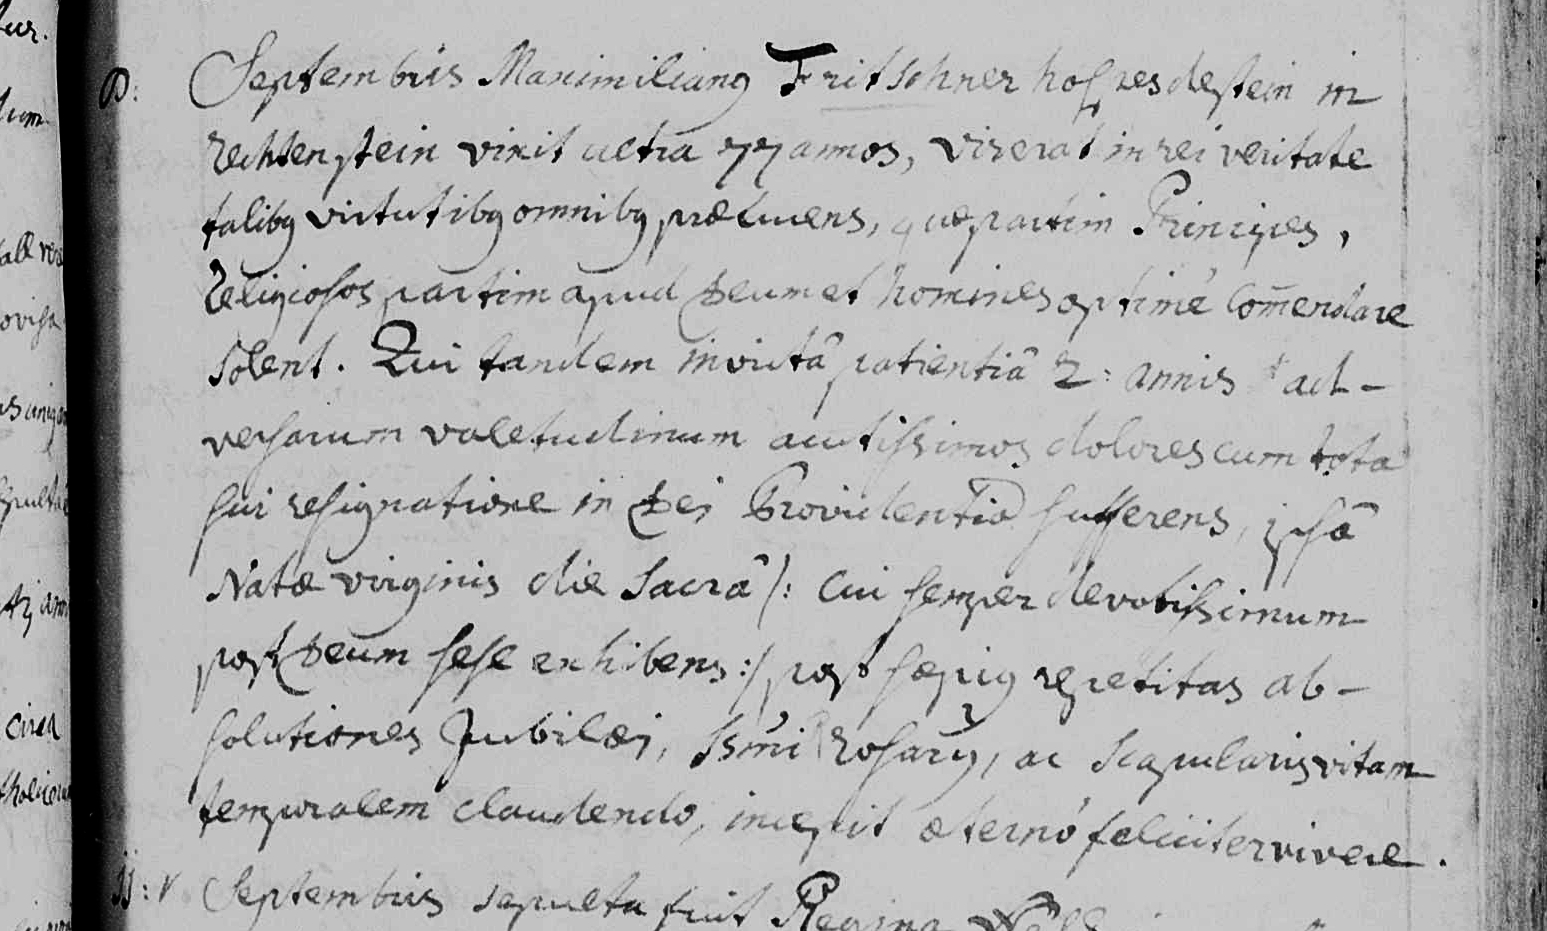 D: Septembris Maximilianꝰ Fritschner hof
rechtenstein vixit ultra 77 annos, vixerat in rei veritate
talibꝰ virtutibꝰ omnibꝰ prælucens, quæ partim Principes,
Religiosos partim apud Deum et homines optimè com̄endare
solent. Qui tandem invictâ patientiâ 2: annis ad-
versarum valetudinum acutissimos dolores cum tota
sui resignatione in Dei Providentia sufferens, ipsâ
Natæ virginis die Sacrâ /: cui semper devotissimum
post Deum sese exhibens :/ post sæpiꝰ repetitas ab-
solutiones Jubilæi, Ssmi Rosarÿ, ac Scapularis vitam
temporalem claudendo, incepit æternò feliciter vivere.
11: Septembris sepulta fuit Regina